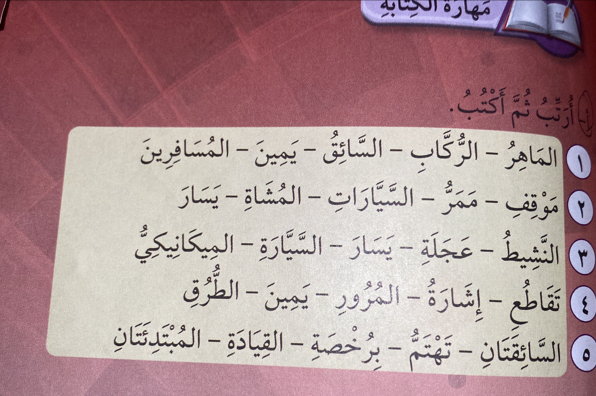 مَهَارَةُ الْكِتَابَةِ
أُرَتِّبُ ثُمَّ أَكْتُبُ.
١ الْمَاهِرُ – الرُّكَّابِ – السَّائِقُ – يَمِينَ – الْمُسَافِرِينَ
٢ مَوْقِفِ – مَمَرُّ – السَّيَّارَاتِ – الْمُشَاةِ – يَسَارَ
٣ النَّشِيطُ – عَجَلَةِ – يَسَارَ – السَّيَّارَةِ – الْمِيكَانِيكِيُّ
٤ تَقَاطُعِ – إِشَارَةُ – الْمُرُورِ – يَمِينَ – الطُّرُقِ
٥ السَّائِقَتَانِ – تَهْتَمُّ – بِرُخْصَةِ – الْقِيَادَةِ – الْمُبْتَدِئَتَانِ